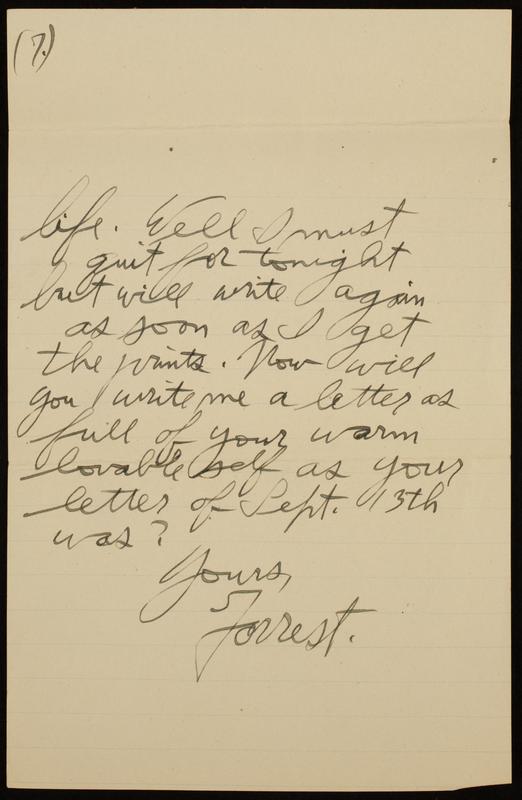 (7.)
life. Well I must
quit for tonight
but will write again
as soon as I get
the prints. Now will
you write me a letter as
full of your warm
lovable self as your
letter of Sept. 13th
was?
Yours,
Forrest.